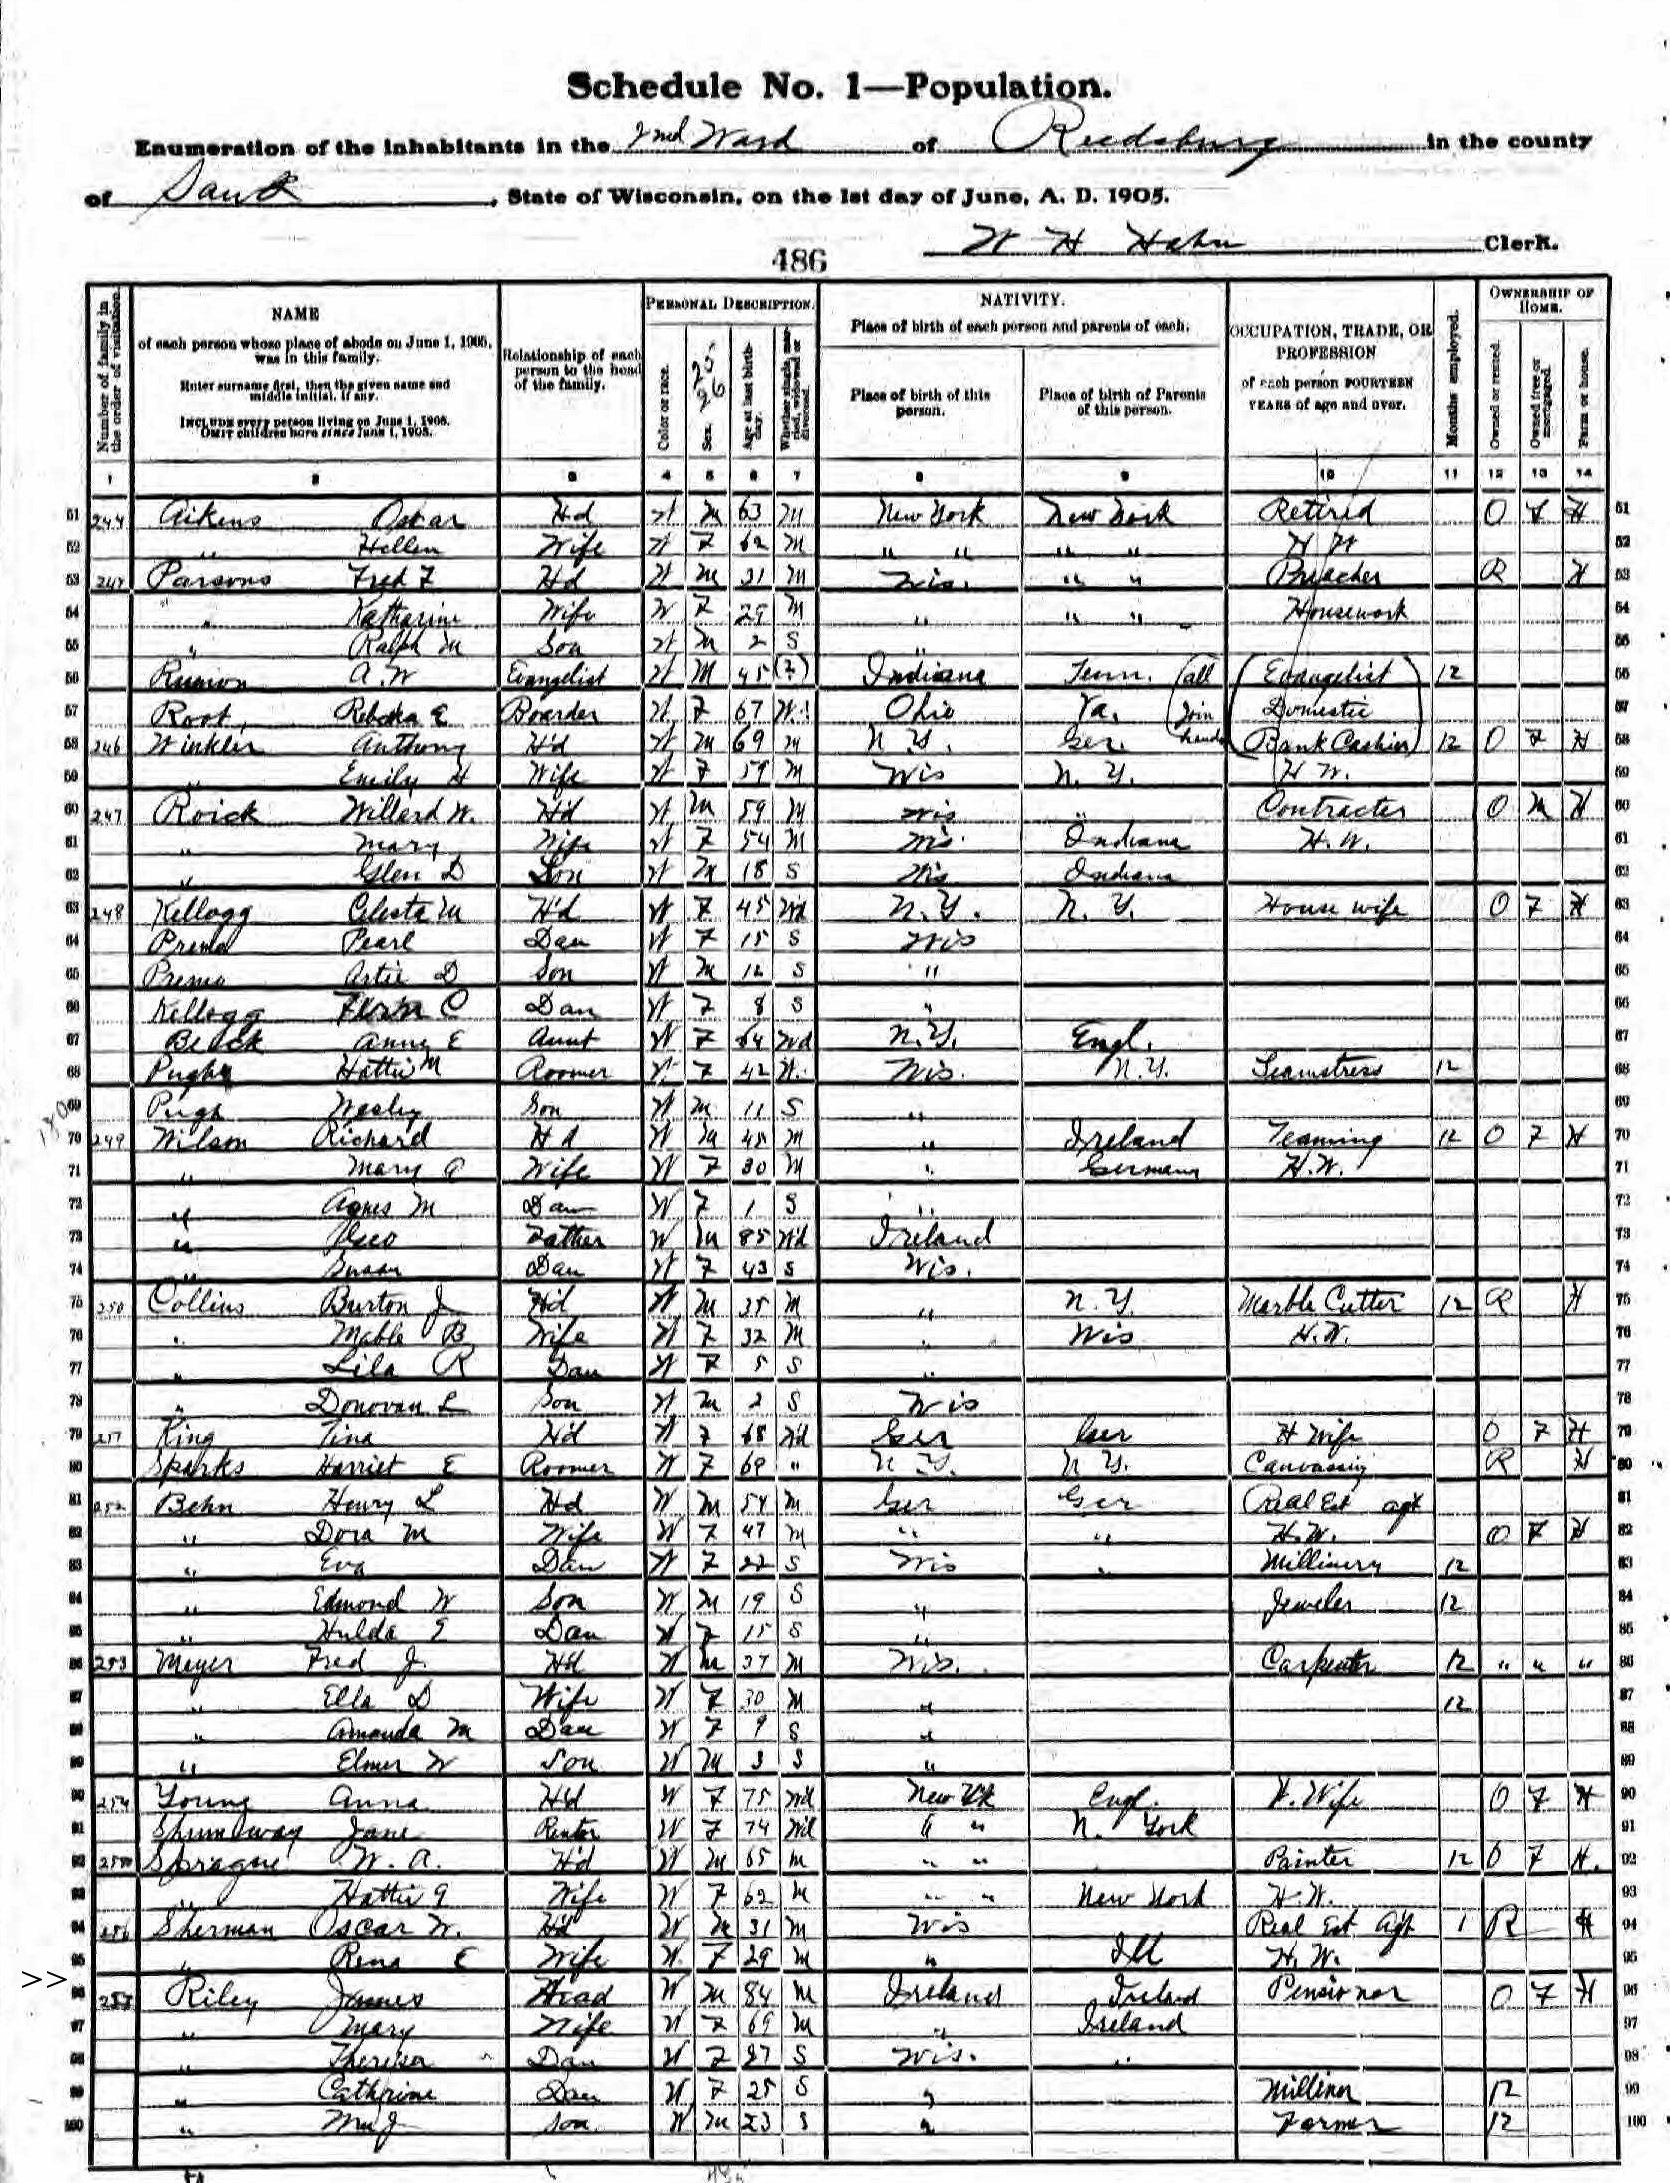 Schedule No. 1—Population.
Enumeration of the inhabitants in the 2nd Ward of Reedsburg in the county
of Sauk, State of Wisconsin, on the 1st day of June, A. D. 1905.
W H Hahn Clerk.
486
Number of family in the order of visitation.
NAME
of each person whose place of abode on June 1, 1905, was in this family.
Enter surname first, then the given name and middle initial, if any.
INCLUDE every person living on June 1, 1905.
OMIT children born since June 1, 1905.
Relationship of each person to the head of the family.
PERSONAL DESCRIPTION.
Color or race.
Sex.
25
26
Age at last birthday.
Whether single, married, widowed or divorced.
NATIVITY.
Place of birth of each person and parents of each.
Place of birth of this person.
Place of birth of Parents of this person.
OCCUPATION, TRADE, OR PROFESSION
of each person FOURTEEN YEARS of age and over.
Months employed.
OWNERSHIP OF HOME.
Owned or rented.
Owned free or mortgaged.
Farm or house.
1 2 3 4 5 6 7 8 9 10 11 12 13 14
51 244 Aikens Oscar Hd W M 63 M New York New York Retired O F H 51
52 " Hellen Wife W F 62 M " " " " H W 52
53 Parsons Fred F Hd W M 31 M Wis. " " Preacher R H 53
54 " Katharine Wife W F 29 M " " " Housework 54
55 " Ralph M Son W M 2 S " 55
56 A. W Evangelist W M 45 (?) Indiana Tenn. (all (Evangelist) 12 56
57 Root, E Boarder W F 67 W. Ohio Va. Domestic 57
58 246 Winkler Anthony H'd W M 69 M N. Y. Ger. (Bank Cashier) 12 O F H 58
59 " Emily H Wife W F 59 M Wis N. Y. H W. 59
60 247 Roick Willard W. H'd W M 59 M Wis " Contracter O M H 60
61 " Mary Wife W F 54 M Wis Indiana H. W. 61
62 " Glen D Son W M 18 S Wis Indiana 62
63 248 Kellogg Celesta M H'd W F 45 Wd N. Y. N. Y. House wife O F H 63
64 Premo Pearl Dau W F 15 S Wis 64
65 Premo Artie D Son W M 12 S " 65
66 Kellogg C Dau W F 8 S " 66
67 Beack Anny E Aunt W F 64 Wd N. Y. Engl. 67
68 Pugh Hattie M Roomer W F 42 W. Wis. N. Y. Seamstress 12 68
69 Pugh Wesley Son W M 11 S " 69
70 249 Wilson Richard Hd W M 45 M " Ireland Teaming 12 O F H 70
71 " Mary A Wife W F 30 M " Germany H. W. 71
72 " Agnes M Dau W F 1 S " 72
73 " Geo Father W M 85 Wd Ireland 73
74 " Susan Dau W F 43 S Wis. 74
75 250 Collins Burton J H'd W M 35 M " N. Y. Marble Cutter 12 R H 75
76 " Mable B Wife W F 32 M " Wis H. W. 76
77 " Lila R Dau W F 5 S " 77
78 " Donovan L Son W M 2 S Wis 78
79 King Tina H'd W F 68 Wd Ger Ger H Wife O F H 79
80 Sparks Harriet E Roomer W F 69 " N. Y. N. Y. Canvassing R H 80
81 252 Behn Henry L Hd W M 54 M Ger Ger Real Est agt 81
82 " Dora M Wife W F 47 M " " H. W. O F H 82
83 " Eva Dau W F 22 S Wis " Millinery 12 83
84 " Edmond W Son W M 19 S " Jeweler 12 84
85 " Hulda E Dau W F 15 S " 85
86 253 Meyer Fred J. Hd W M 37 M Wis. Carpenter 12 " " " 86
87 " Ella D Wife W F 30 M " 12 87
88 " Amanda M Dau W F 9 S " 88
89 " Elmer W Son W M 3 S " 89
90 254 Young Anna H'd W F 75 Wd New Yk Engl. H. Wife O F H 90
91 Shumway Jane Rentor W F 74 Wd " " N. York 91
92 Sprague W. A. H'd W M 65 M " " Painter 12 O F H. 92
93 " Hattie G Wife W F 62 M " " New York H. W. 93
94 256 Sherman Oscar W. H'd W M 31 M Wis Real Est Agt 1 R H 94
95 " Rena E Wife W. F 29 M " Ill H. W. 95
>>
96 257 Riley James Head W M 84 M Ireland Ireland Pensionor O F H 96
97 " Mary Wife W F 69 M " Ireland 97
98 " Theresa Dau W F 27 S Wis. " 98
99 " Cathrine Dau W F 25 S " Milliner 12 99
100 " Wm J Son W M 23 S " Farmer 12 100